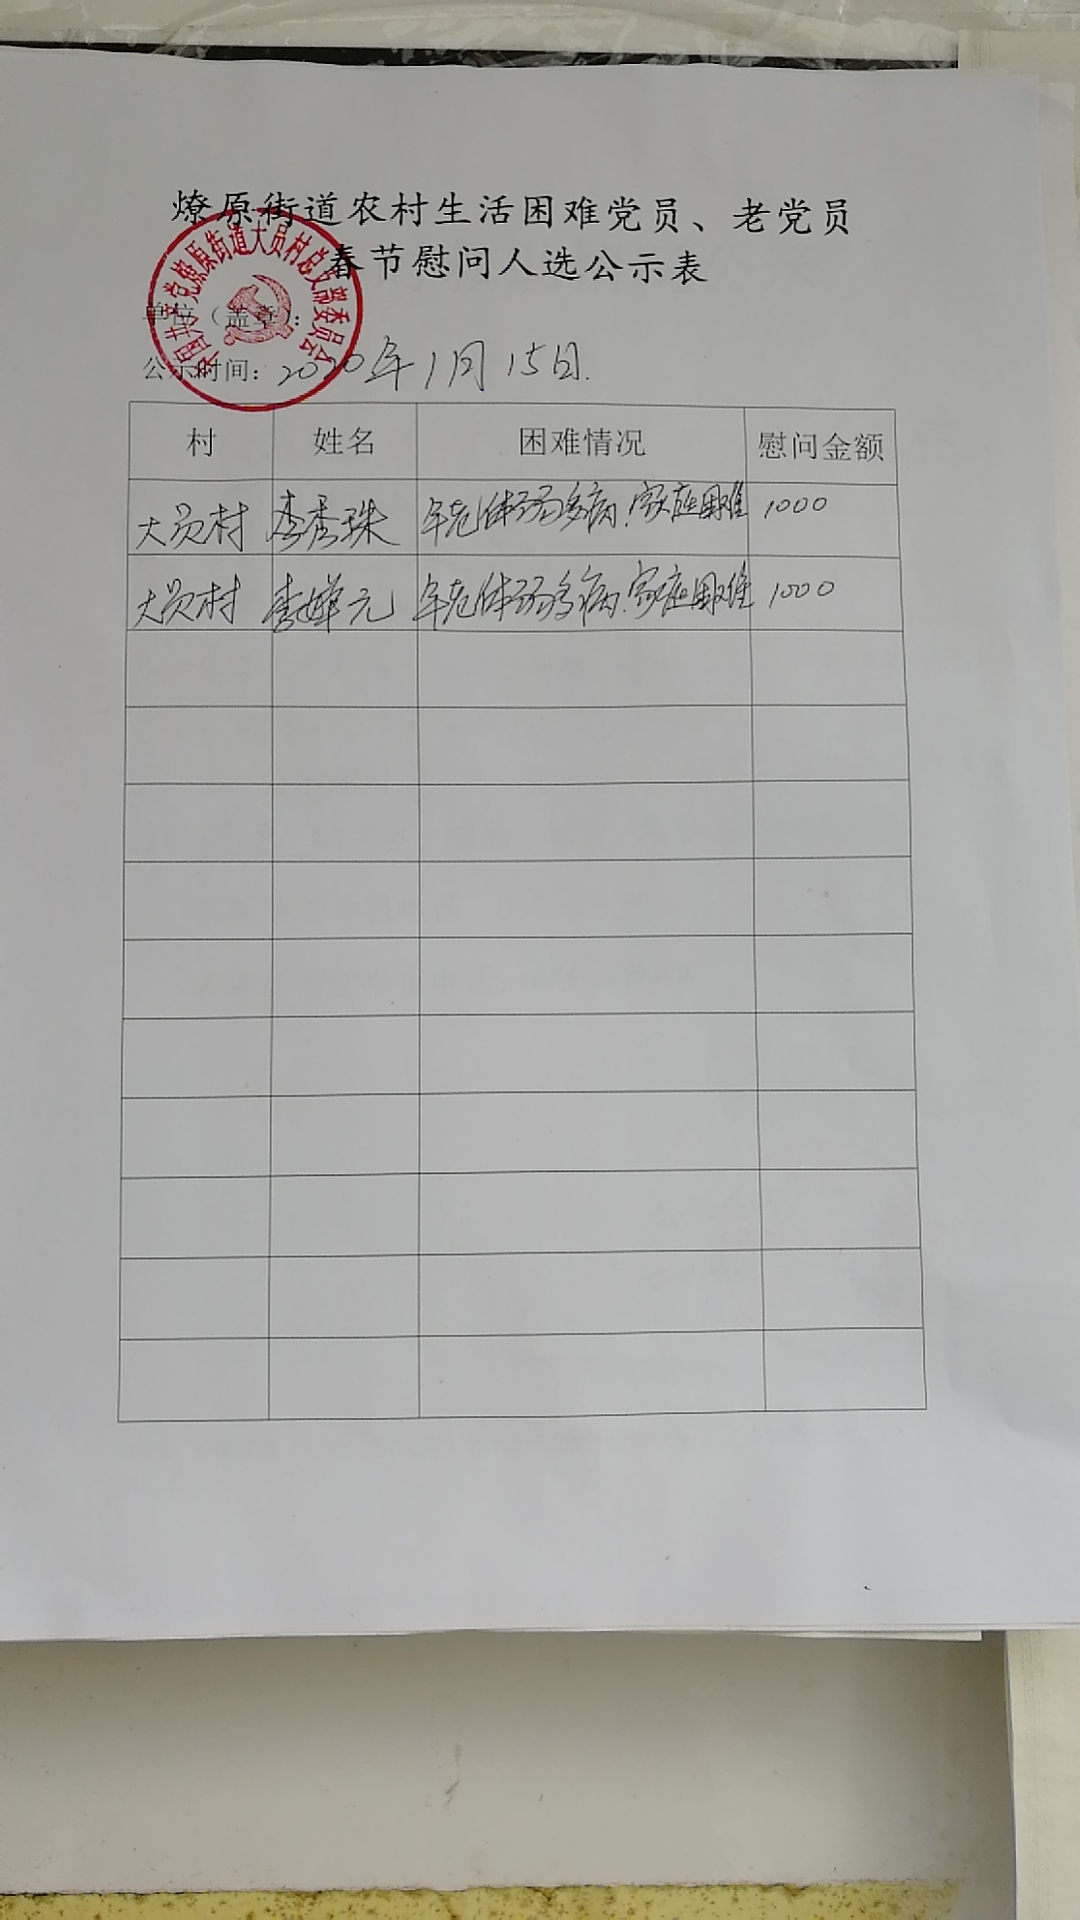 燎原街道农村生活困难党员、老党员
春节慰问人选公示表
中国共产党燎原街道大员村总支部委员会
单位（盖章）：
公示时间：2020年1月15日.
村 姓名 困难情况 慰问金额
大员村 李秀珠 年老体弱多病.家庭困难 1000
大员村 李婵元 年老体弱多病.家庭困难 1000